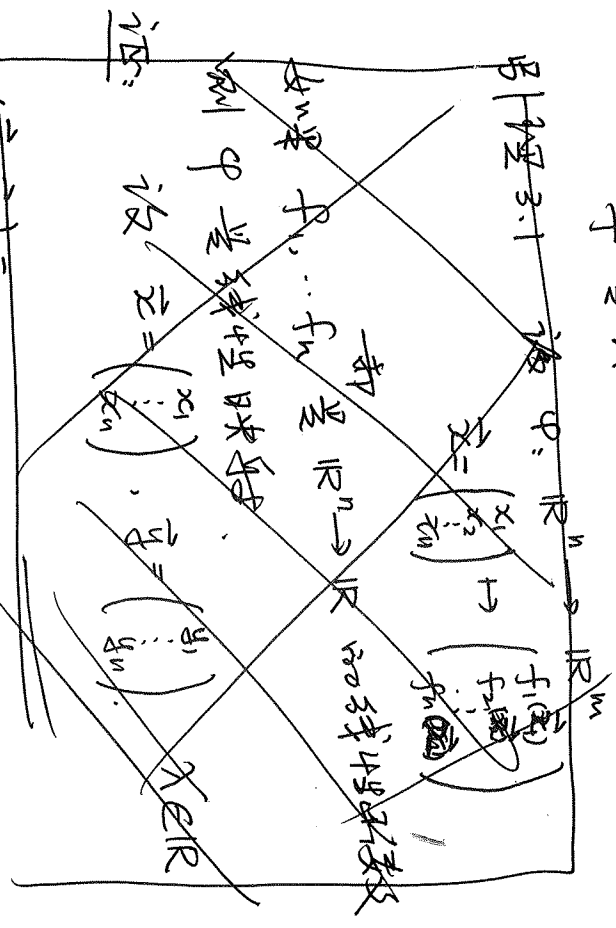 引理 3.1 设 φ: ℝⁿ → ℝᵐ
x⃗ = (x₁ x₂ ⋮ xₙ) ↦ (f₁(x⃗) f₂(x⃗) ⋮ fₙ(x⃗))
如果 f₁, … fₙ 都是 ℝⁿ → ℝ 的线性函数
则 φ 是线性映射
证: 设 x⃗ = (x₁ ⋮ xₙ), y⃗ = (y₁ ⋮ yₙ). λ∈ℝ